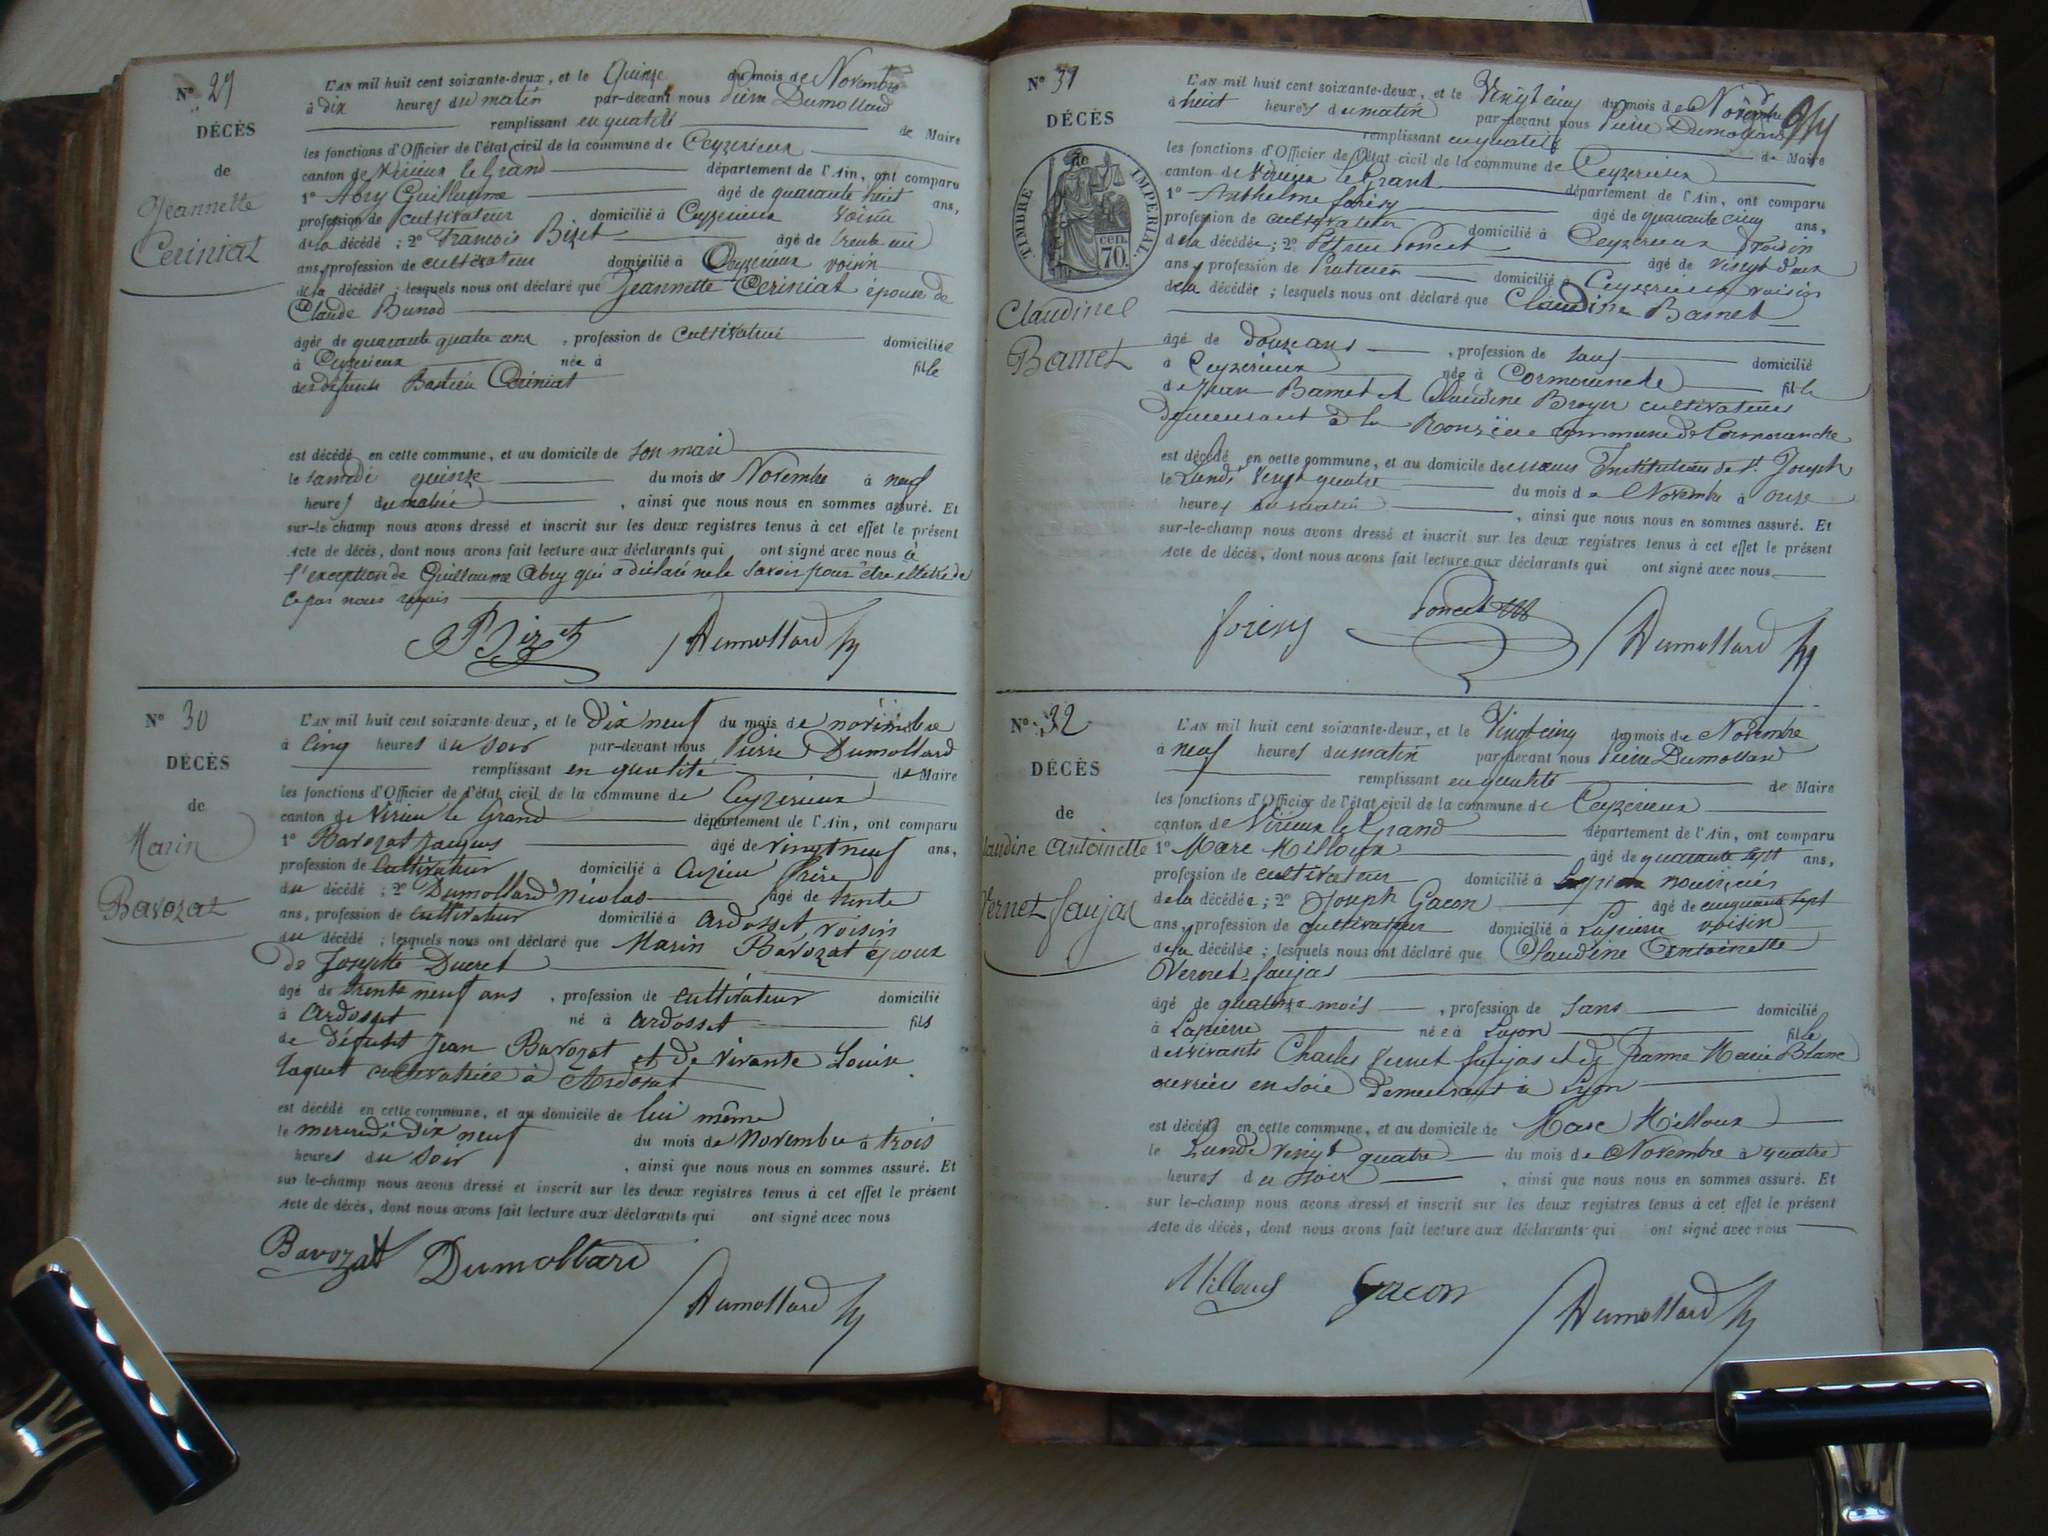 N° 29
DÉCÈS
de
Jeannette
Ceriniat
L'AN mil huit cent soixante-deux, et le Quinze du mois de Novembre
à dix heures du matin par-devant nous Pierre Dumollard
remplissant en qualité de Maire
les fonctions d'Officier de l'état civil de la commune de Ceyzerieux
canton de Virieux le Grand département de l'Ain, ont comparu
1° Abry Guillaume âgé de quarante huit ans,
profession de cultivateur domicilié à Ceyzerieux voisin
de la décédé ; 2° Francois Bizet âgé de trente un
ans, profession de cultivateur domicilié à Ceyzerieux voisin
de la décédée ; lesquels nous ont déclaré que Jeannette Ceriniat épouse de
Claude Bunod
âgée de quarante quatre ans , profession de cultivateur domiciliée
à Ceyzerieux née à fille
des défunts Bastien Ceriniat
est décédé en cette commune, et au domicile de son mari
le samedi quinze du mois de Novembre à neuf
heures du matin , ainsi que nous nous en sommes assuré. Et
sur-le-champ nous avons dressé et inscrit sur les deux registres tenus à cet effet le présent
Acte de décès, dont nous avons fait lecture aux déclarants qui ont signé avec nous à
l'exception de Guillaume Abry qui a déclaré ne le savoir pour être illettré de
ce par nous requis
Bizet Dumollard
N° 30
DÉCÈS
de
Marin
Bavozat
L'AN mil huit cent soixante-deux, et le Dix neuf du mois de novembre
à Cinq heures du Soir par-devant nous Pierre Dumollard
remplissant en qualité de Maire
les fonctions d'Officier de l'état civil de la commune de Ceyzerieux
canton de Virieu le Grand département de l'Ain, ont comparu
1° Bavozat Jacques âgé de vingt neuf ans,
profession de Cultivateur domicilié à Auzieu frère
du décédé ; 2° Dumollard Nicolas âgé de trente
ans, profession de cultivateur domicilié à ardosset voisin
du décédé ; lesquels nous ont déclaré que Marin Bavozat époux
de Josephte Ducret
âgé de trente neuf ans , profession de cultivateur domicilié
à ardosset né à ardosset fils
de défunt Jean Bavozat et de vivante Louise
Taquet cultivatrice à Ardosat
est décédé en cette commune, et au domicile de lui même
le mercredi dix neuf du mois de novembre à trois
heures du soir , ainsi que nous nous en sommes assuré. Et
sur le-champ nous avons dressé et inscrit sur les deux registres tenus à cet effet le présent
Acte de décès, dont nous avons fait lecture aux déclarants qui ont signé avec nous
Bavozat Dumollard
Dumollard
N° 31
DÉCÈS
de
TIMBRE IMPÉRIAL.
cen. 70.
Claudine
Bamet
L'AN mil huit cent soixante-deux, et le Vingt cinq du mois de Novembre
à huit heures du matin par-devant nous Pierre Dumollard
remplissant en qualité de Maire
les fonctions d'Officier de l'état civil de la commune de Ceyzerieux
canton de Virieux le Grand département de l'Ain, ont comparu
1° Anthelme âgé de quarante cinq ans,
profession de cultivateur domicilié à Ceyzerieux voisin
de la décédée ; 2° Poncet âgé de vingt deux
ans, profession de Praticien domicilié à Ceyzerieux voisin
de la décédée ; lesquels nous ont déclaré que Claudine Bamet
âgé de douze ans , profession de sans domicilié
à Ceyzerieux née à Cormoranche fille
de Jean Bamet et Claudine Broyer cultivateurs
demeurant à la commune de Cormoranche
est décédé en cette commune, et au domicile de Institution de St. Joseph
le Lundi vingt quatre du mois de Novembre à onze
heures du matin , ainsi que nous nous en sommes assuré. Et
sur-le-champ nous avons dressé et inscrit sur les deux registres tenus à cet effet le présent
Acte de décès, dont nous avons fait lecture aux déclarants qui ont signé avec nous
Poncet Dumollard
N° 32
DÉCÈS
de
Claudine Antoinette
Vernet faujas
L'AN mil huit cent soixante-deux, et le Vingt cinq du mois de Novembre
à neuf heures du matin par-devant nous Pierre Dumollard
remplissant en qualité de Maire
les fonctions d'Officier de l'état civil de la commune de Ceyzerieux
canton de Virieux le Grand département de l'Ain, ont comparu
1° Marc Milloux âgé de quarante sept ans,
profession de cultivateur domicilié à nourricier
de la décédée ; 2° Joseph Gacon âgé de cinquante sept
ans, profession de cultivateur domicilié à Lapierre voisin
de la décédée ; lesquels nous ont déclaré que Claudine Antoinette
Vernet faujas
âgé de quatorze mois , profession de sans domicilié
à Lapierre née à Lyon fille
des vivants Charles Vernet faujas et de Jeanne Marie Blanc
ouvriers en soie demeurant à Lyon
est décédé en cette commune, et au domicile de Marc Milloux
le Lundi vingt quatre du mois de Novembre à quatre
heures du soir , ainsi que nous nous en sommes assuré. Et
sur le-champ nous avons dressé et inscrit sur les deux registres tenus à cet effet le présent
Acte de décès, dont nous avons fait lecture aux déclarants qui ont signé avec nous
Milloux Gacon Dumollard